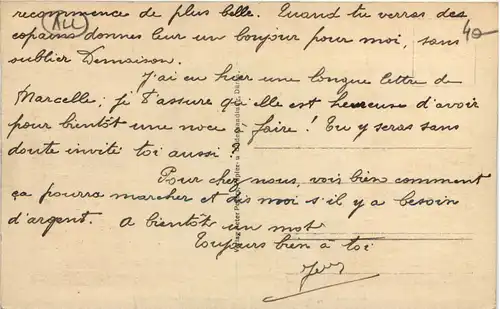 recommence de plus belle. Quand tu verras des
copains donnes leur un bonjour pour moi, sans
oublier Demaison.
J'ai eu hier une longue lettre de
Marcelle; je t'assure qu'elle est heureuse d'avoir
pour bientôt une noce à faire! Tu y seras sans
doute invité toi aussi!
Pour chez nous, vois bien comment
ça pourra marcher et dis moi s'il y a besoin
d'argent. A bientôt un mot
Toujours bien à toi
40